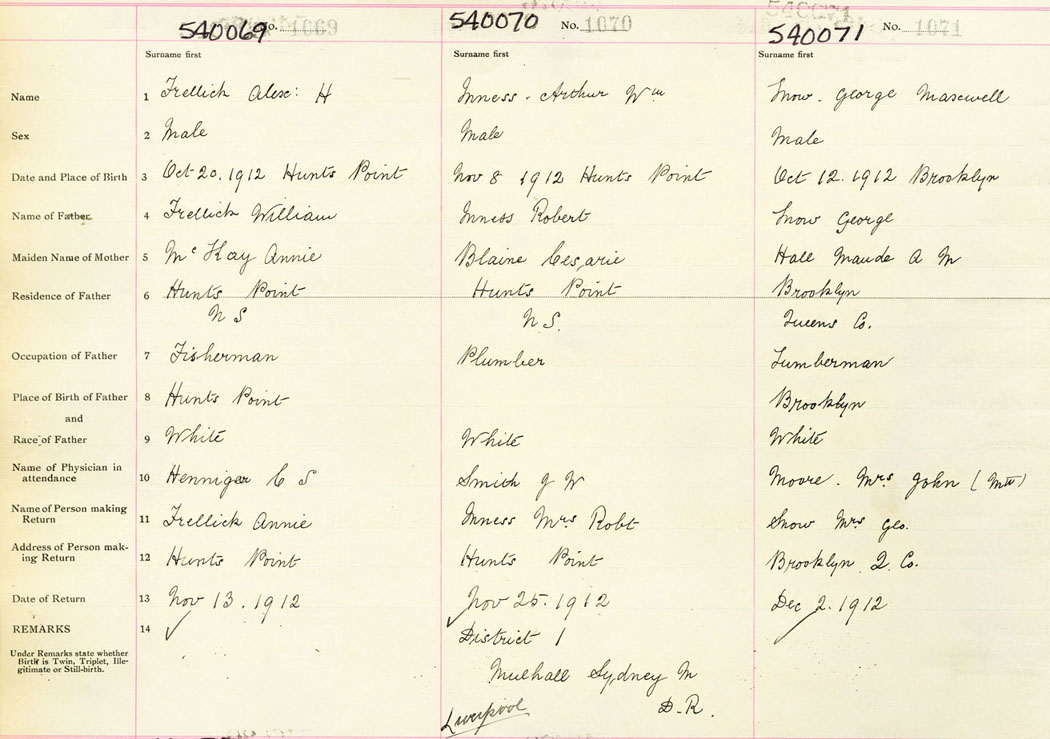 540069 No. 1069 540070 No. 1070 540071 No. 1071
Surname first Surname first Surname first
Name 1 Frellick Alex: H Inness. Arthur Wm Snow. George Maxwell
Sex 2 Male Male Male
Date and Place of Birth 3 Oct 20. 1912 Hunts Point Nov 8 1912 Hunts Point Oct 12. 1912 Brooklyn
Name of Father 4 Frellick William Inness Robert Snow George
Maiden Name of Mother 5 Mc Kay Annie Blaine Hall Maude A M
Residence of Father 6 Hunts Point Hunts Point Brooklyn
N S N.S. Queens Co.
Occupation of Father 7 Fisherman Plumber Lumberman
Place of Birth of Father 8 Hunts Point Brooklyn
and
Race of Father 9 White White White
Name of Physician in
attendance 10 Hennigar C S Smith J W Moore. Mrs John
Name of Person making
Return 11 Frellick Annie Inness Mrs Robt Snow Mrs Geo.
Address of Person mak-
ing Return 12 Hunts Point Hunts Point Brooklyn Q. Co.
Date of Return 13 Nov 13. 1912 Nov 25. 1912 Dec 2. 1912
REMARKS 14 District 1
Under Remarks state whether
Birth is Twin, Triplet, Ille-
gitimate or Still-birth.
Mulhall Sydney M
Liverpool D.R.